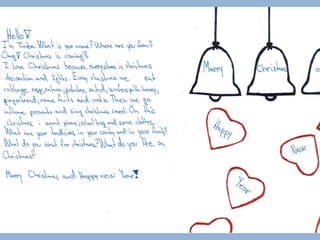 Hello!
I'm Tinka. What is your name? Where are you from?
Omg! Christmas is coming!
I Love Christmas because everywhere is christmas
decoration and lights. Every christmas we eat
cabbage soup, salmon, potatoe salad, wafers with honey,
gingerbread, some fruits and cookie. Then we go
unframe presents and sing christmas carol. On this
christmas i want phone, small bag and some clothes.
What are your traditions in your country and in your family?
What do you want for christmas? What do you like on
Christmas?
Merry Christmas and Happy new Year!
Merry
Christmas
Happy
New
Year